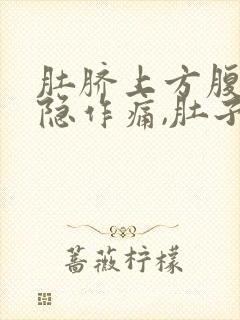 肚脐上方腹
隐作痛,肚子
蔷薇柠檬